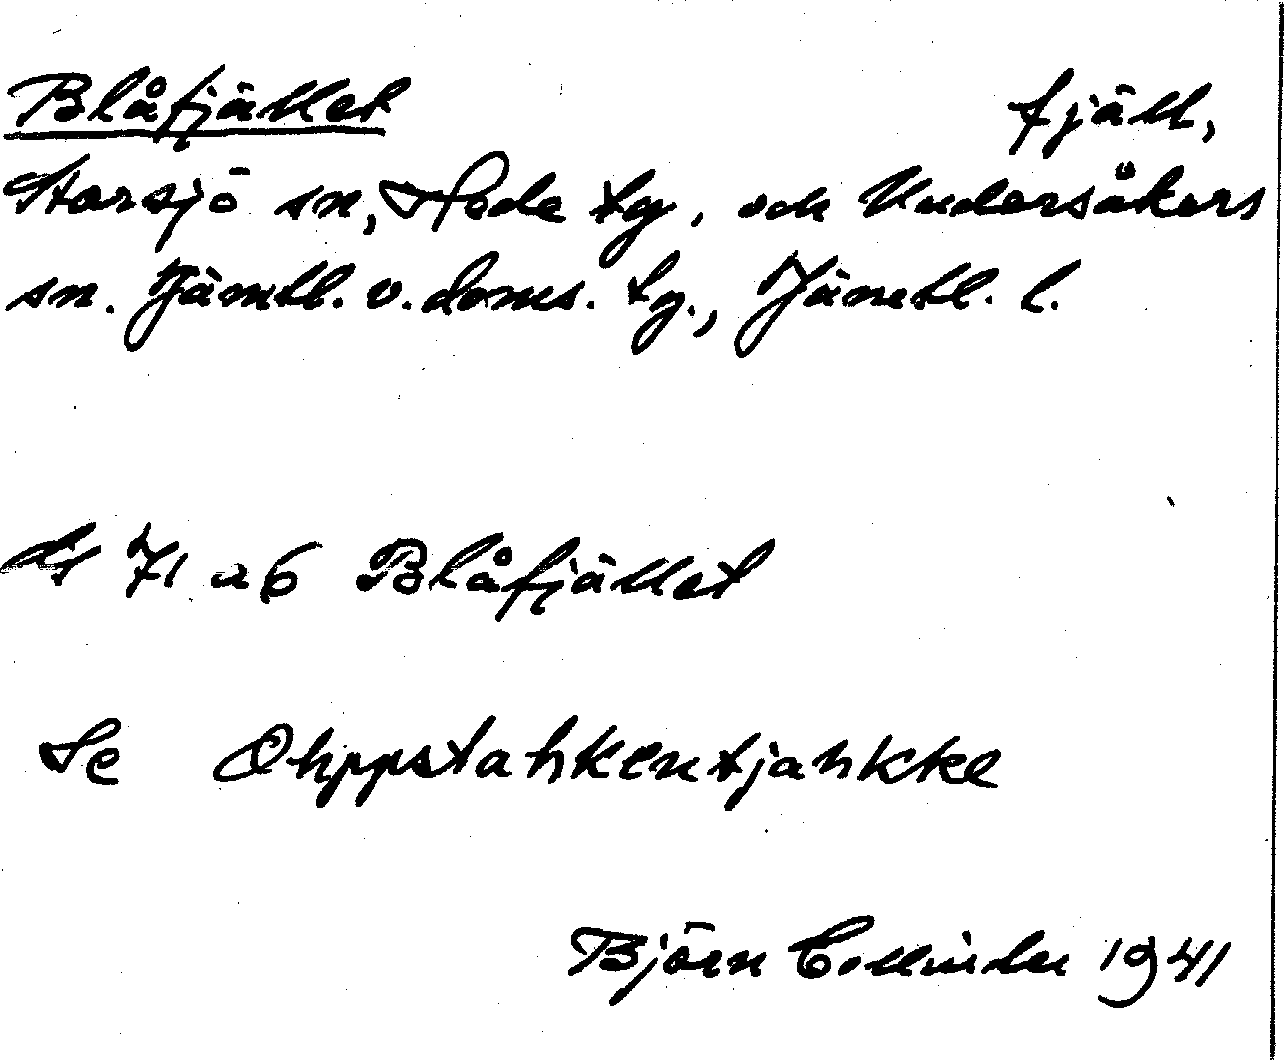 Blåfjället fjäll,
Storsjö sn, Hede tg, och Undersåkers
sn. Jämtl. v. doms. tg., Jämtl. l.
ds 71 a 6 Blåfjället
Se Ohppstahkentjahkke
Björn Collinder 1941